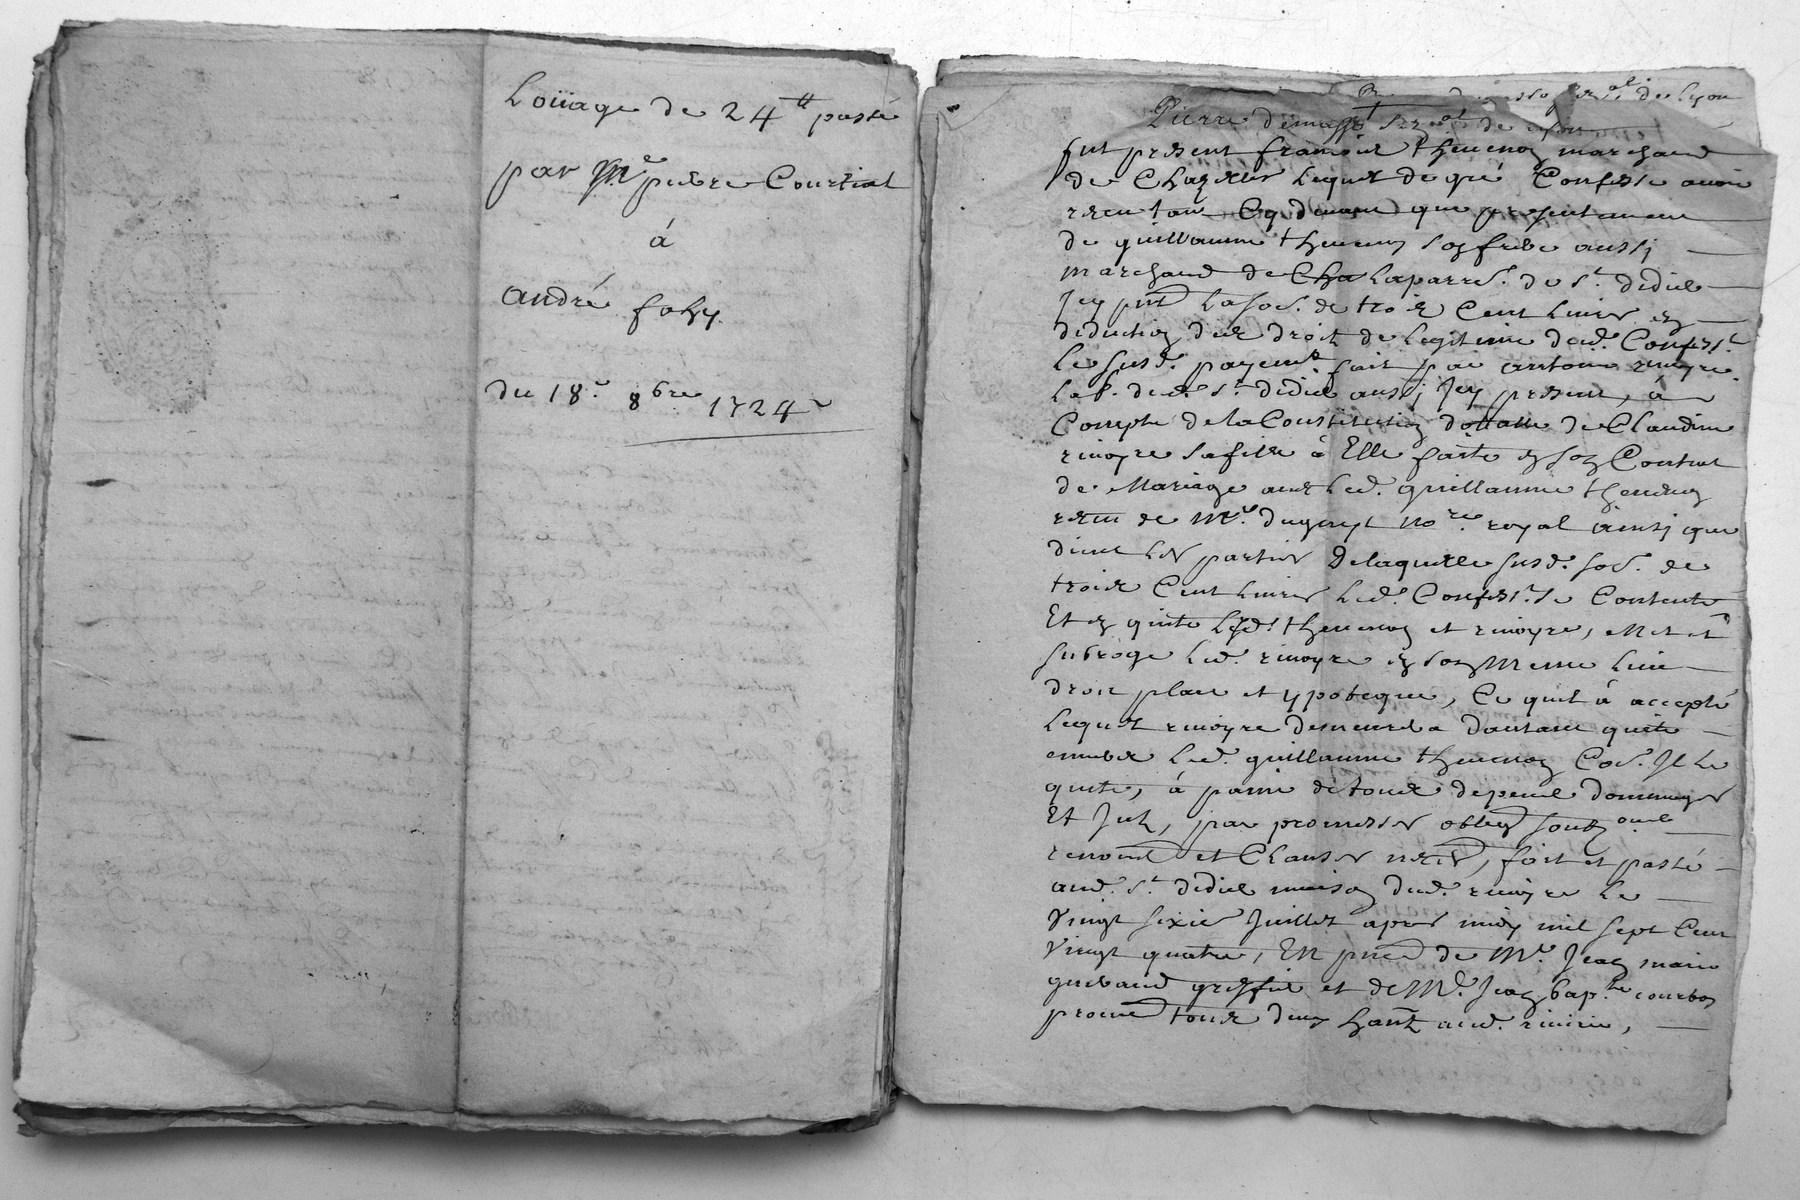 Loüage de 24ᵗᵗ passé
par Mᵉ pierre Courtial
á
andré foby
du 18.ᵉ 8ᵇʳᵉ 1724
de Lyon
Pierre
fut present francois thevenon marchand
de Chazelles Lequel de gré Confesse avoir
receu tant Cy devant que presentement
de guillaume thevenon son frere aussi
marchand de Cha Laparre. de Sᵗ. didier
Jcy pnt La so͞e. de trois Cent Livres en
deduction des droit de Legitime dud. Confess.ᵗ
Le susd. payemᵗ fait par antoine rivoyre
Lab. dud. Sᵗ. didier aussi Jcy present, á
Compte de la Constitution dottalle de Claudine
rivoyre sa fille á Elle faite en son Contrat
de Mariage avec Led. guillaume thevenon
receu de Mᵉ. no.ʳᵉ royal ainsi que
dient Les parties De laquelle susd. so͞e. de
trois Cent Livres Led. Confess.ᵗ se Contente
Et en quitte Lesd. thevenon et rivoyre, Met et
subroge Led. rivoyre en son Meme Lieu
droit place et ypoteque, Ce quil á accepté
Lequel rivoyre demeurera dautant quitte
envers Led. guillaume thevenon Co͞e. Jl Le
quitte, á paine de tous depens dommages
Et Jnt, par promesses oblig͞
renon͞ et Clauses nec͞es, fait et passé
aud. Sᵗ. didier maison dud. rivoyre Le
Vingt sixie Juillet apres midy mil sept Cent
Vingt quatre, En pnce de Mᵉ. Jean marie
greffier et de Mᵉ. Jean bap.ᵗᵉ courbon
tous deux hantˢ aud. riverie,